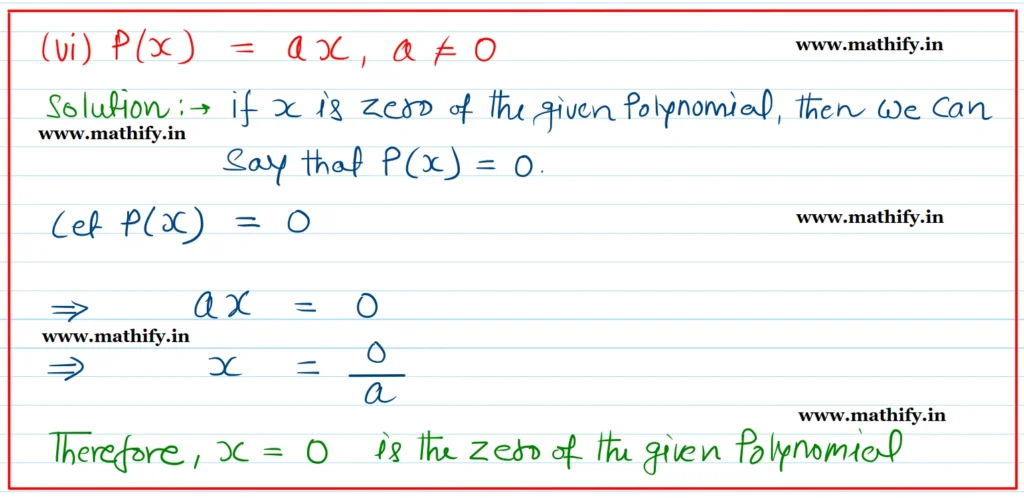 (vi) P(x) = ax, a ≠ 0
www.mathify.in
Solution :→ if x is zero of the given Polynomial, then we can
www.mathify.in
Say that P(x) = 0.
Let P(x) = 0
www.mathify.in
⇒ ax = 0
www.mathify.in
⇒ x = 0/a
www.mathify.in
Therefore, x = 0 is the zero of the given Polynomial